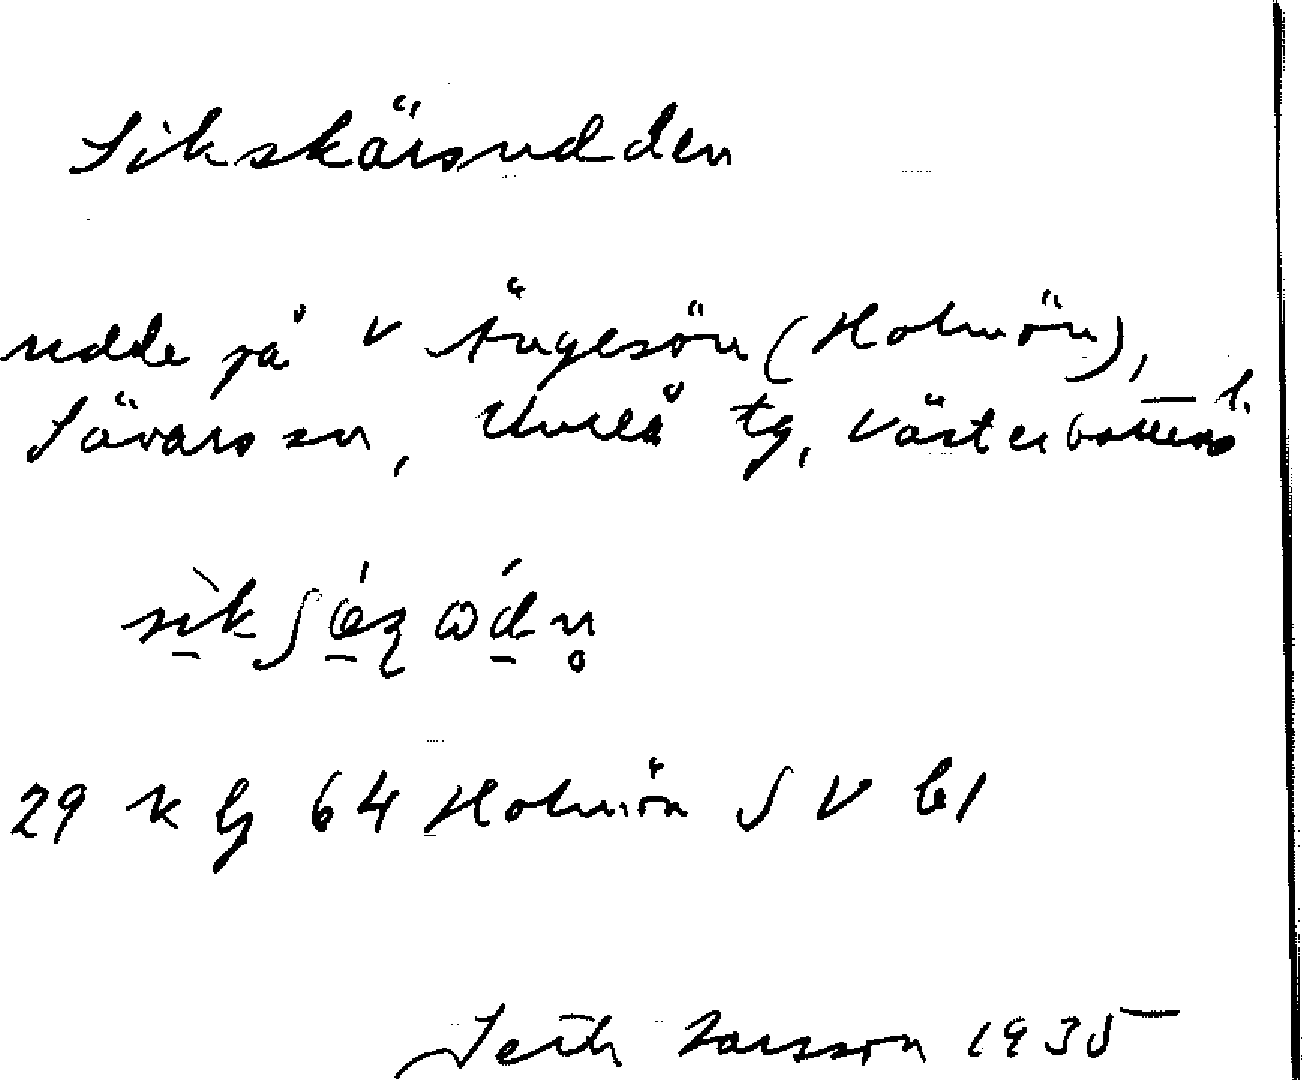 Sikskärsudden
udde på v Ängesön (Holmön),
Sävars sn, Umeå tg, Västerbottens l.
29 k bj 64 Holmön S V bl
Seth Larsson 1935